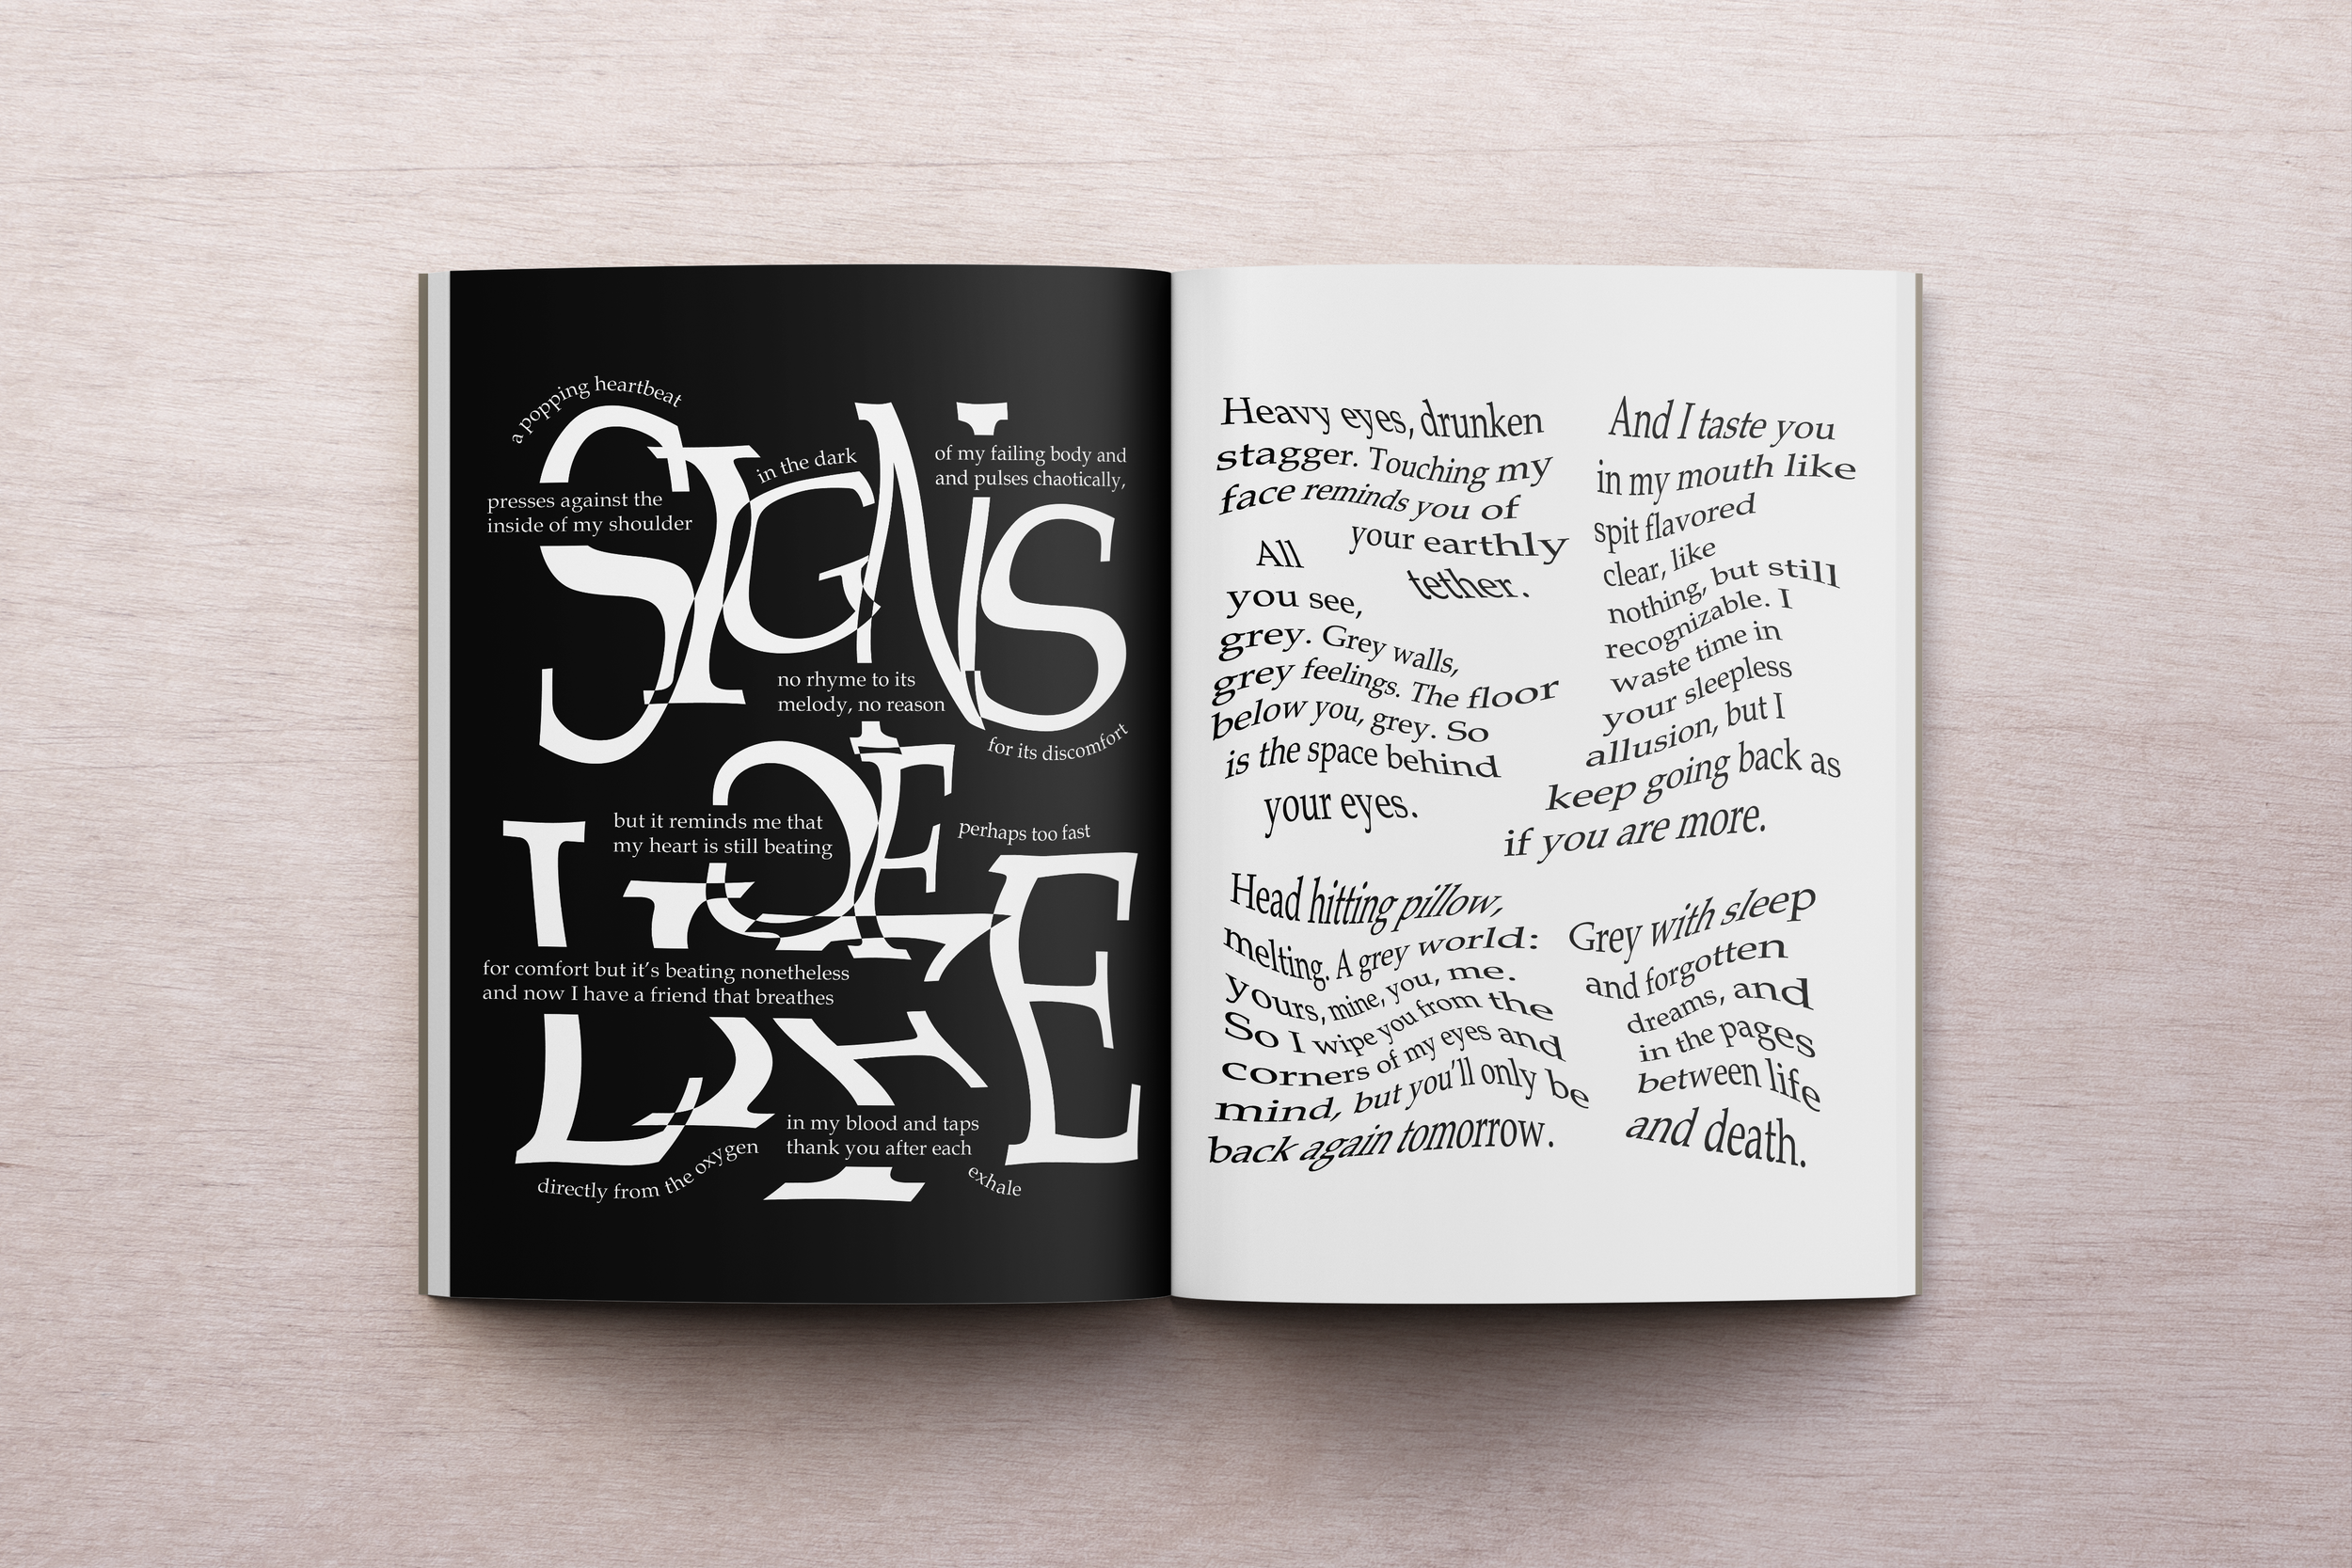 SIGNS
OF
LIFE
a popping heartbeat
presses against the
inside of my shoulder
in the dark
of my failing body and
and pulses chaotically,
no rhyme to its
melody, no reason
for its discomfort
but it reminds me that
my heart is still beating
perhaps too fast
for comfort but it’s beating nonetheless
and now I have a friend that breathes
directly from the oxygen
in my blood and taps
thank you after each
exhale
Heavy eyes, drunken
stagger. Touching my
face reminds you of
your earthly
tether.
All
you see,
grey. Grey walls,
grey feelings. The floor
below you, grey. So
is the space behind
your eyes.
And I taste you
in my mouth like
spit flavored
clear, like
nothing, but still
recognizable. I
waste time in
your sleepless
allusion, but I
keep going back as
if you are more.
Head hitting pillow,
melting. A grey world:
yours, mine, you, me.
So I wipe you from the
corners of my eyes and
mind, but you’ll only be
back again tomorrow.
Grey with sleep
and forgotten
dreams, and
in the pages
between life
and death.